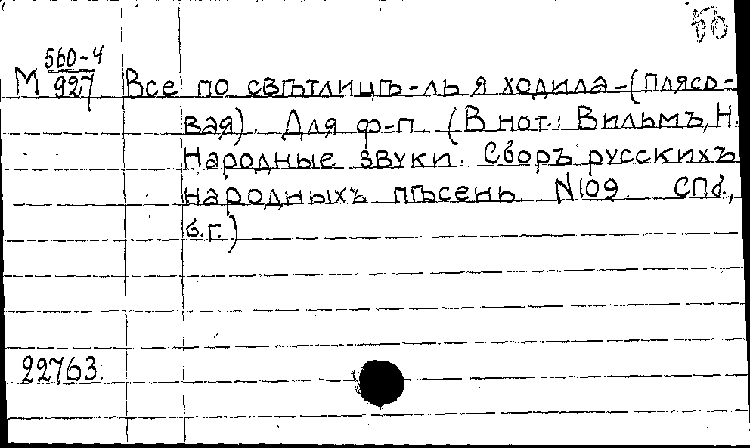 М 560-4/927 Все по свѣтлицѣ-ль я ходила-(плясо-
вая). Для ф-п. (В нот.: Вильмъ, Н.
Народные звуки. Сборъ русскихъ
народныхъ пѣсень N109 СПб.,
б.г.)
22763.